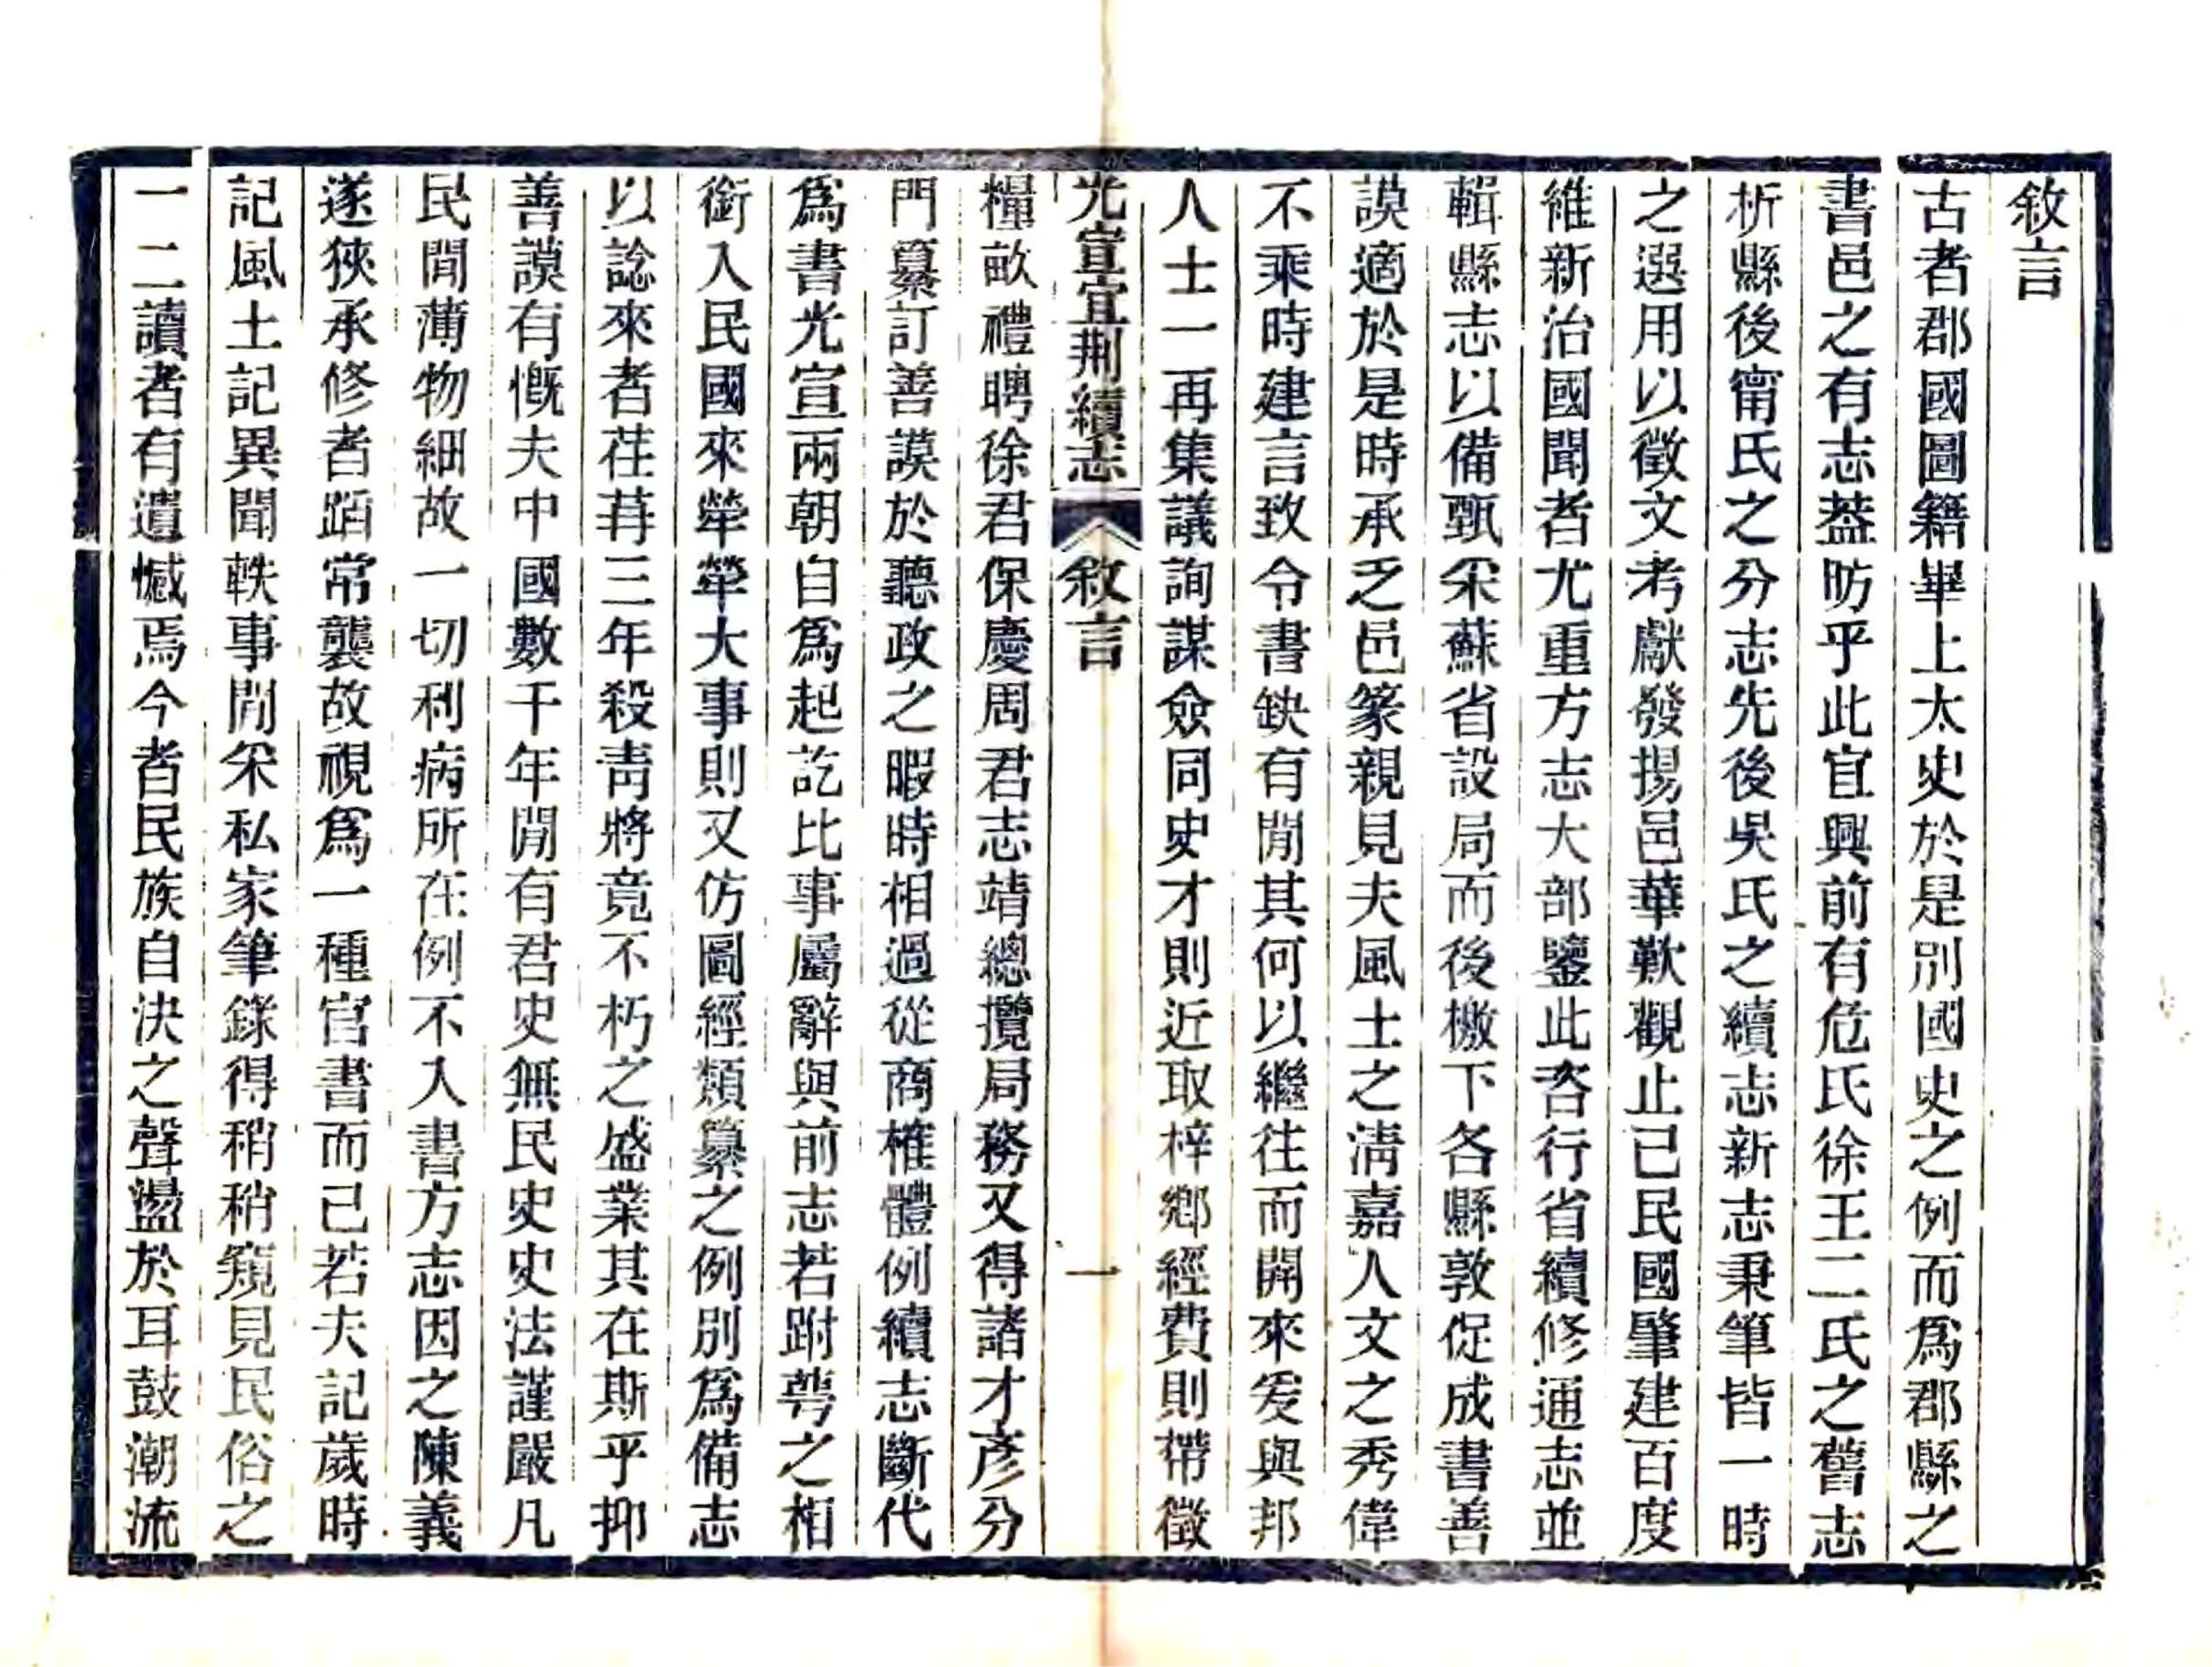 敘言
古者郡國圖籍畢上太史於是別國史之例而為郡縣之
書邑之有志葢昉乎此宜興前有危氏徐王二氏之舊志
析縣後甯氏之分志先後吳氏之續志新志秉筆皆一時
之選用以徵文考獻發揚邑華歎觀止已民國肇建百度
維新治國聞者尤重方志大部鑒此咨行省續修通志並
輯縣志以備甄采蘇省設局而後檄下各縣敦促成書善
謨適於是時承乏邑篆親見夫風土之淸嘉人文之秀偉
不乘時建言致令書缺有閒其何以繼往而開來爰與邦
人士一再集議詢謀僉同史才則近取梓鄉經費則帶徵
光宣宜荆續志 敘言 一
糧畝禮聘徐君保慶周君志靖總攬局務又得諸才彥分
門纂訂善謨於聽政之暇時相過從商榷體例續志斷代
為書光宣兩朝自為起訖比事屬辭與前志若跗萼之相
銜入民國來犖犖大事則又仿圖經類纂之例別為備志
以諗來者荏苒三年殺靑將竟不朽之盛業其在斯乎抑
善謨有慨夫中國數千年閒有君史無民史史法謹嚴凡
民閒薄物細故一切利病所在例不入書方志因之陳義
遂狹承修者蹈常襲故視為一種官書而已若夫記歲時
記風土記異聞軼事閒采私家筆錄得稍稍窺見民俗之
一二讀者有遺憾焉今者民族自決之聲盪於耳鼓潮流